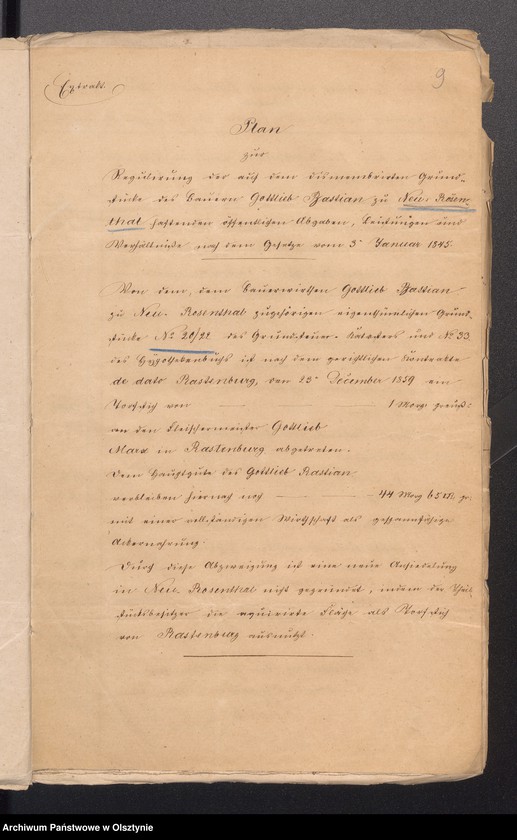 9
Extrakt.
Plan
zur
Regulirung der auf dem dismembrirten Grund-
stücke des Bauern Gottlieb Bastian zu Neu-Rosen-
thal haftenden öffentlichen Abgaben, Leistungen und
Verhältnisse nach dem Gesetze vom 3t Januar 1845.
Von dem, dem Bauerwirthen Gottlieb Bastian
zu Neu-Rosenthal zugehörigen eigenthümlichen Grund-
stücke No 20/22 des Grundsteuer-Katasters und No 33
des Hypothekenbuchs ist nach dem gerichtlichen Kontrakte
de dato Rastenburg, den 23t December 1859 ein
Torfstich von — 1 Morg. preuß:
an den Fleischermeister Gottlieb
Marx in Rastenburg abgetreten.
Dem Hauptgute des Gottlieb Bastian
verbleiben hiernach noch — — 44 Morg 65 □R. pr.
mit einer vollständigen Wirthschaft als gespannfähige
Ackernahrung.
Durch diese Abzweigung ist eine neue Ansiedelung
in Neu-Rosenthal nicht gegründet, indem der Theil-
stücksbesitzer die aquirirte Fläche als Torfstich
von Rastenburg ausnutzt.
Archiwum Państwowe w Olsztynie